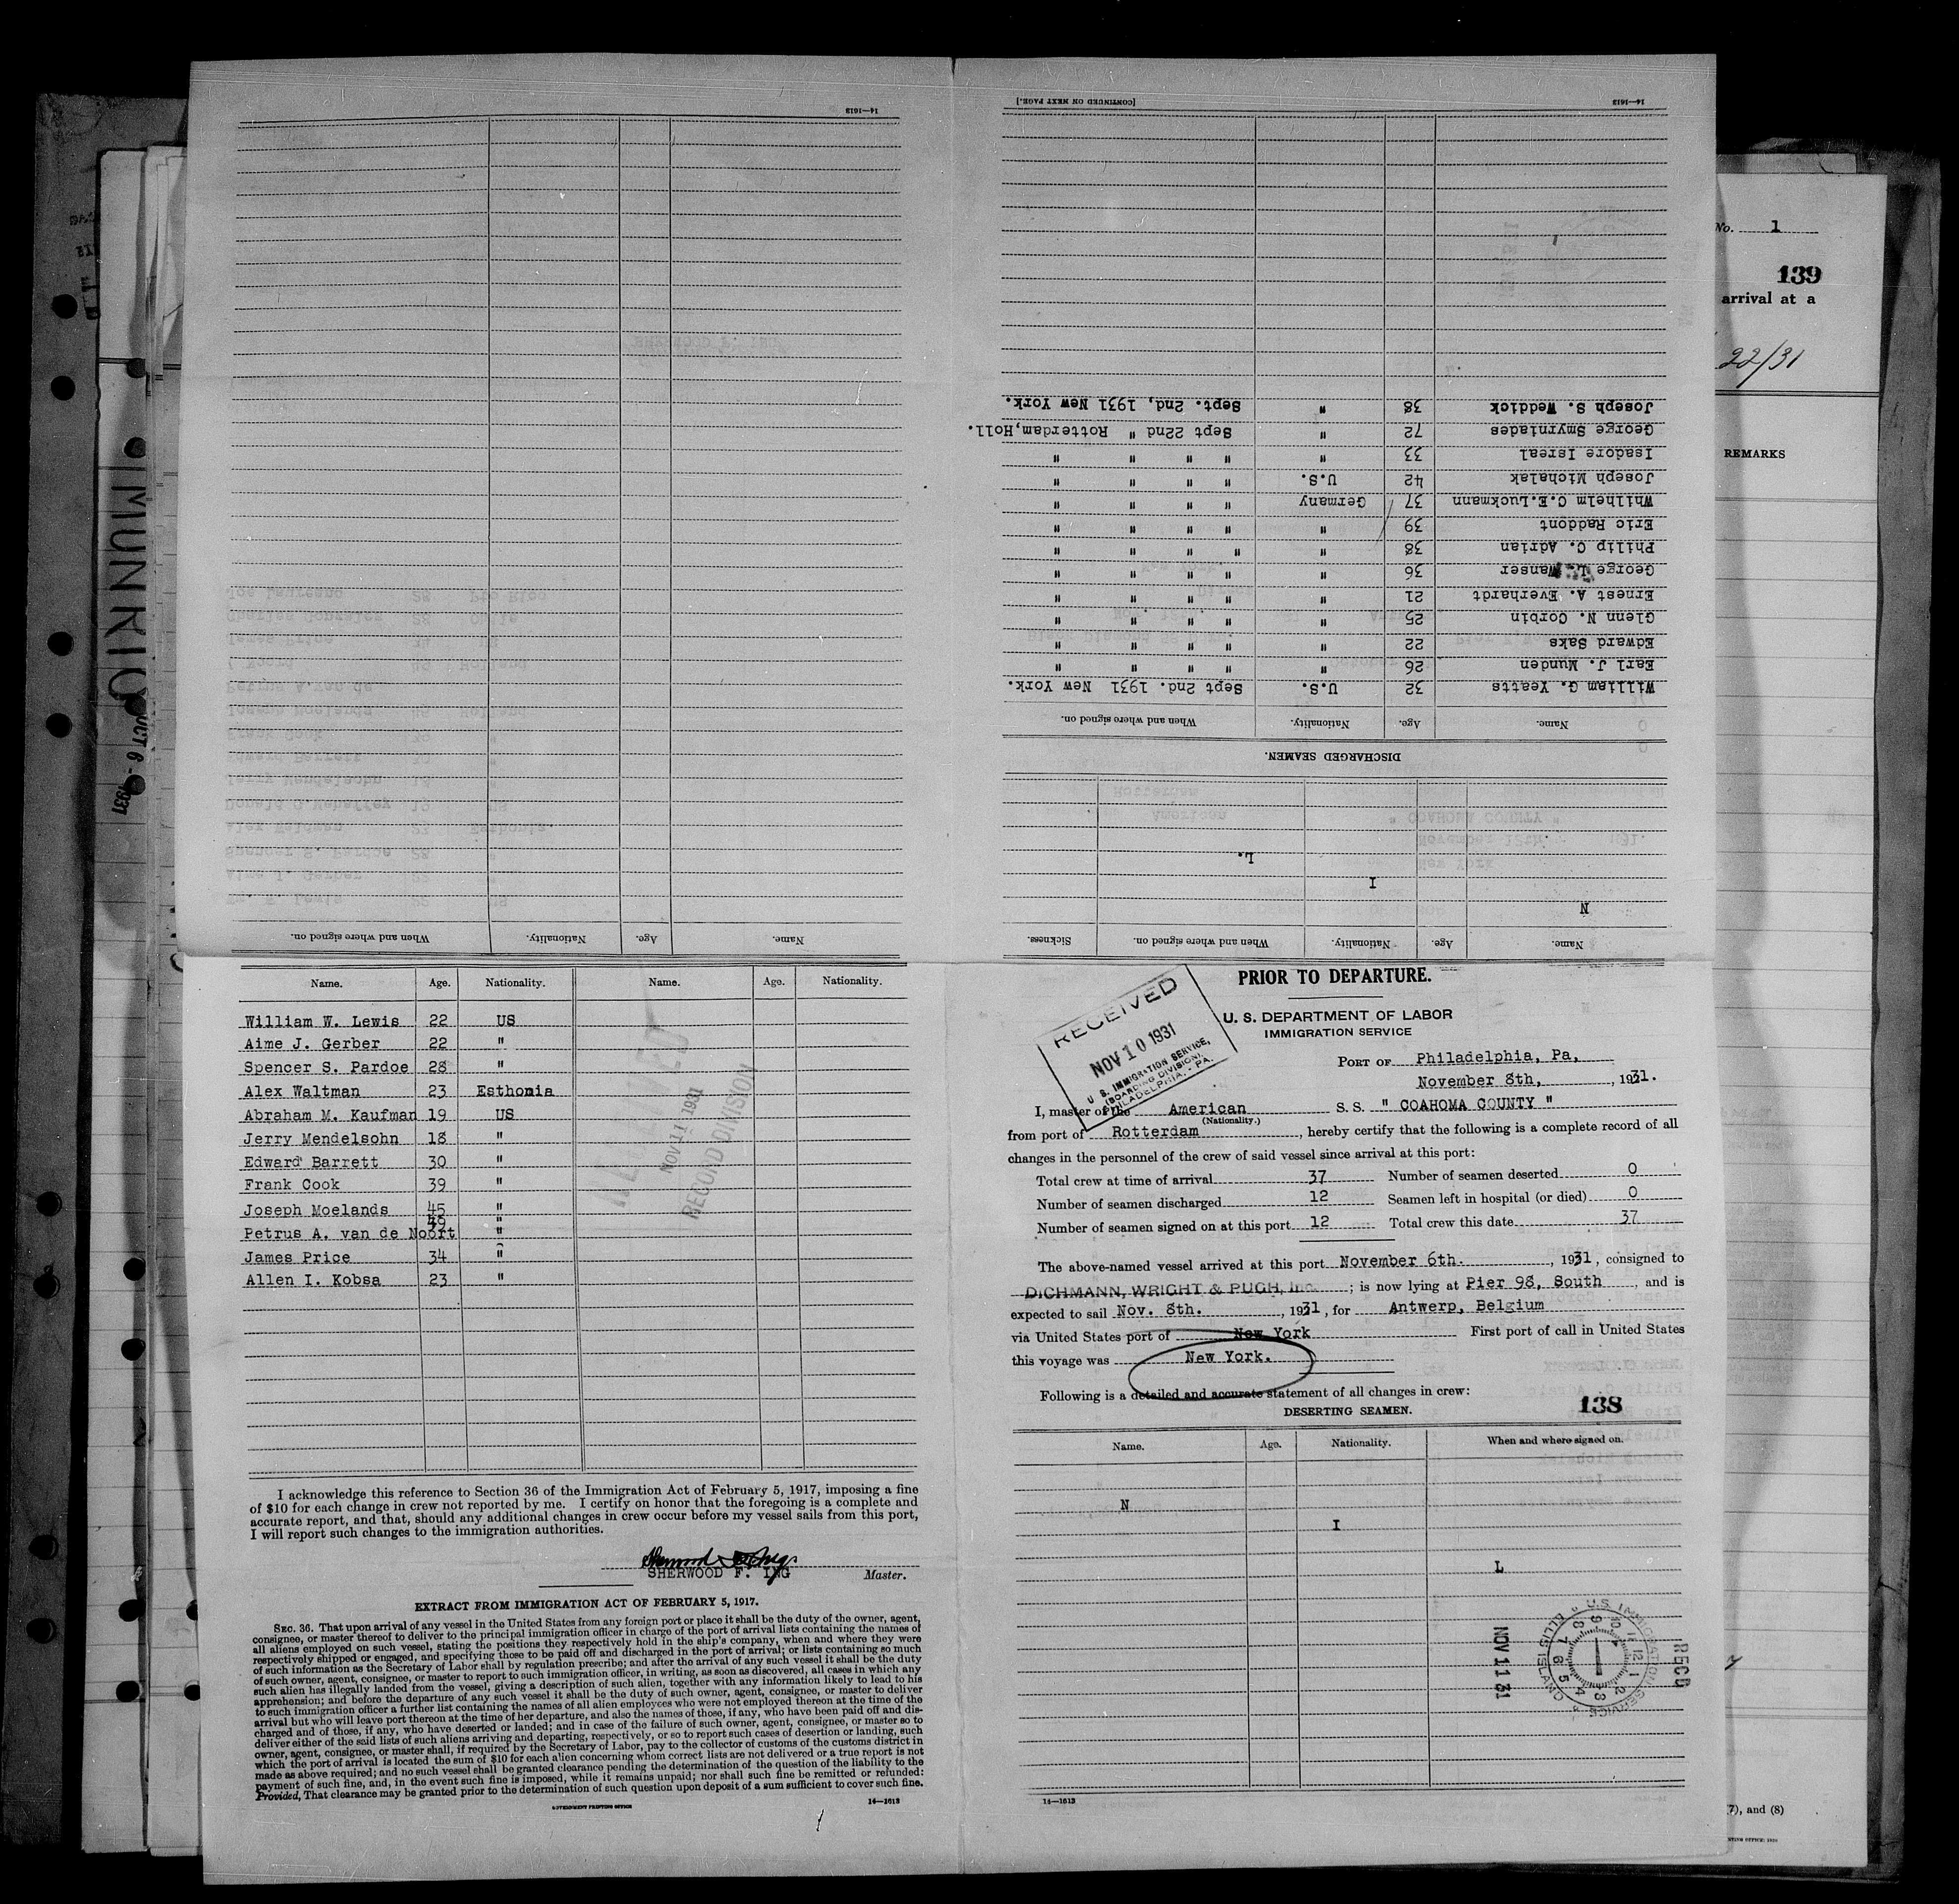 PRIOR TO DEPARTURE.
U. S. DEPARTMENT OF LABOR
IMMIGRATION SERVICE
RECEIVED
NOV 10 1931
U. S. IMMIGRATION SERVICE,
(BOARDING DIVISION),
PHILADELPHIA, - PA.
PORT OF Philadelphia, Pa,
November 8th, , 1931.
I, master of the American S. S. " COAHOMA COUNTY "
(Nationality.)
from port of Rotterdam , hereby certify that the following is a complete record of all
changes in the personnel of the crew of said vessel since arrival at this port:
Total crew at time of arrival 37 Number of seamen deserted 0
Number of seamen discharged 12 Seamen left in hospital (or died) 0
Number of seamen signed on at this port 12 Total crew this date 37
The above-named vessel arrived at this port November 6th. , 1931, consigned to
DICHMANN, WRIGHT & PUGH, Inc. ; is now lying at Pier 98, South , and is
expected to sail Nov. 8th. , 1931, for Antwerp, Belgium
via United States port of New York First port of call in United States
this voyage was New York.
Following is a detailed and accurate statement of all changes in crew:
DESERTING SEAMEN.
138
Name. Age. Nationality. When and where signed on.
N
I
L
REC'D
NOV 11 31
U.S. IMMIGRATION SERVICE
ELLIS ISLAND
14—1613
Name. Age. Nationality. When and where signed on. Sickness.
N
I
L.
DISCHARGED SEAMEN.
Name. Age. Nationality. When and where signed on.
William G. Yeatts 32 U.S. Sept 2nd. 1931 New York.
Earl J. Munden 26 " " " " "
Edward Saks 22 " " " " "
Glenn N. Corbin 25 " " " " "
Ernest A. Everhardt 21 " " " " "
George L. Manser 36 " " " " "
Philip C. Adrian 38 " " " " "
Eric Raddont 39 " " " " "
Whilhelm C.E.Luckmann 37 Germany " " " "
Joseph Michalak 42 U.S. " " " "
Isadore Isreal 33 " " " " "
George Smyrniades 72 " Sept 22nd " Rotterdam,Holl.
Joseph S. Weddick 38 " Sept. 2nd, 1931 New York.
14—1613
[CONTINUED ON NEXT PAGE.]
Name. Age. Nationality. When and where signed on.
14—1613
Name. Age. Nationality. Name. Age. Nationality.
William W. Lewis 22 US
Aime J. Gerber 22 "
Spencer S. Pardoe 28 "
Alex Waltman 23 Esthonia
Abraham M. Kaufman 19 US
Jerry Mendelsohn 18 "
Edward Barrett 30 "
Frank Cook 39 "
Joseph Moelands 45 "
Petrus A. van de Noort 49 "
James Price 34 "
Allen I. Kobsa 23 "
RECEIVED
NOV 11 1931
RECORD DIVISION
I acknowledge this reference to Section 36 of the Immigration Act of February 5, 1917, imposing a fine
of $10 for each change in crew not reported by me. I certify on honor that the foregoing is a complete and
accurate report, and that, should any additional changes in crew occur before my vessel sails from this port,
I will report such changes to the immigration authorities.
SHERWOOD F. ING Master.
EXTRACT FROM IMMIGRATION ACT OF FEBRUARY 5, 1917.
SEC. 36. That upon arrival of any vessel in the United States from any foreign port or place it shall be the duty of the owner, agent,
consignee, or master thereof to deliver to the principal immigration officer in charge of the port of arrival lists containing the names of
all aliens employed on such vessel, stating the positions they respectively hold in the ship's company, when and where they were
respectively shipped or engaged, and specifying those to be paid off and discharged in the port of arrival; or lists containing so much
of such information as the Secretary of Labor shall by regulation prescribe; and after the arrival of any such vessel it shall be the duty
of such owner, agent, consignee, or master to report to such immigration officer, in writing, as soon as discovered, all cases in which any
such alien has illegally landed from the vessel, giving a description of such alien, together with any information likely to lead to his
apprehension; and before the departure of any such vessel it shall be the duty of such owner, agent, consignee, or master to deliver
to such immigration officer a further list containing the names of all alien employees who were not employed thereon at the time of the
arrival but who will leave port thereon at the time of her departure, and also the names of those, if any, who have been paid off and dis-
charged and of those, if any, who have deserted or landed; and in case of the failure of such owner, agent, consignee, or master so to
deliver either of the said lists of such aliens arriving and departing, respectively, or so to report such cases of desertion or landing, such
owner, agent, consignee, or master shall, if required by the Secretary of Labor, pay to the collector of customs of the customs district in
which the port of arrival is located the sum of $10 for each alien concerning whom correct lists are not delivered or a true report is not
made as above required; and no such vessel shall be granted clearance pending the determination of the question of the liability to the
payment of such fine, and, in the event such fine is imposed, while it remains unpaid; nor shall such fine be remitted or refunded:
Provided, That clearance may be granted prior to the determination of such question upon deposit of a sum sufficient to cover such fine.
GOVERNMENT PRINTING OFFICE
14—1613
No. 1
139
arrival at a
22/31
REMARKS
(7), and (8)
MUNRIO
OCT 6 - 1931